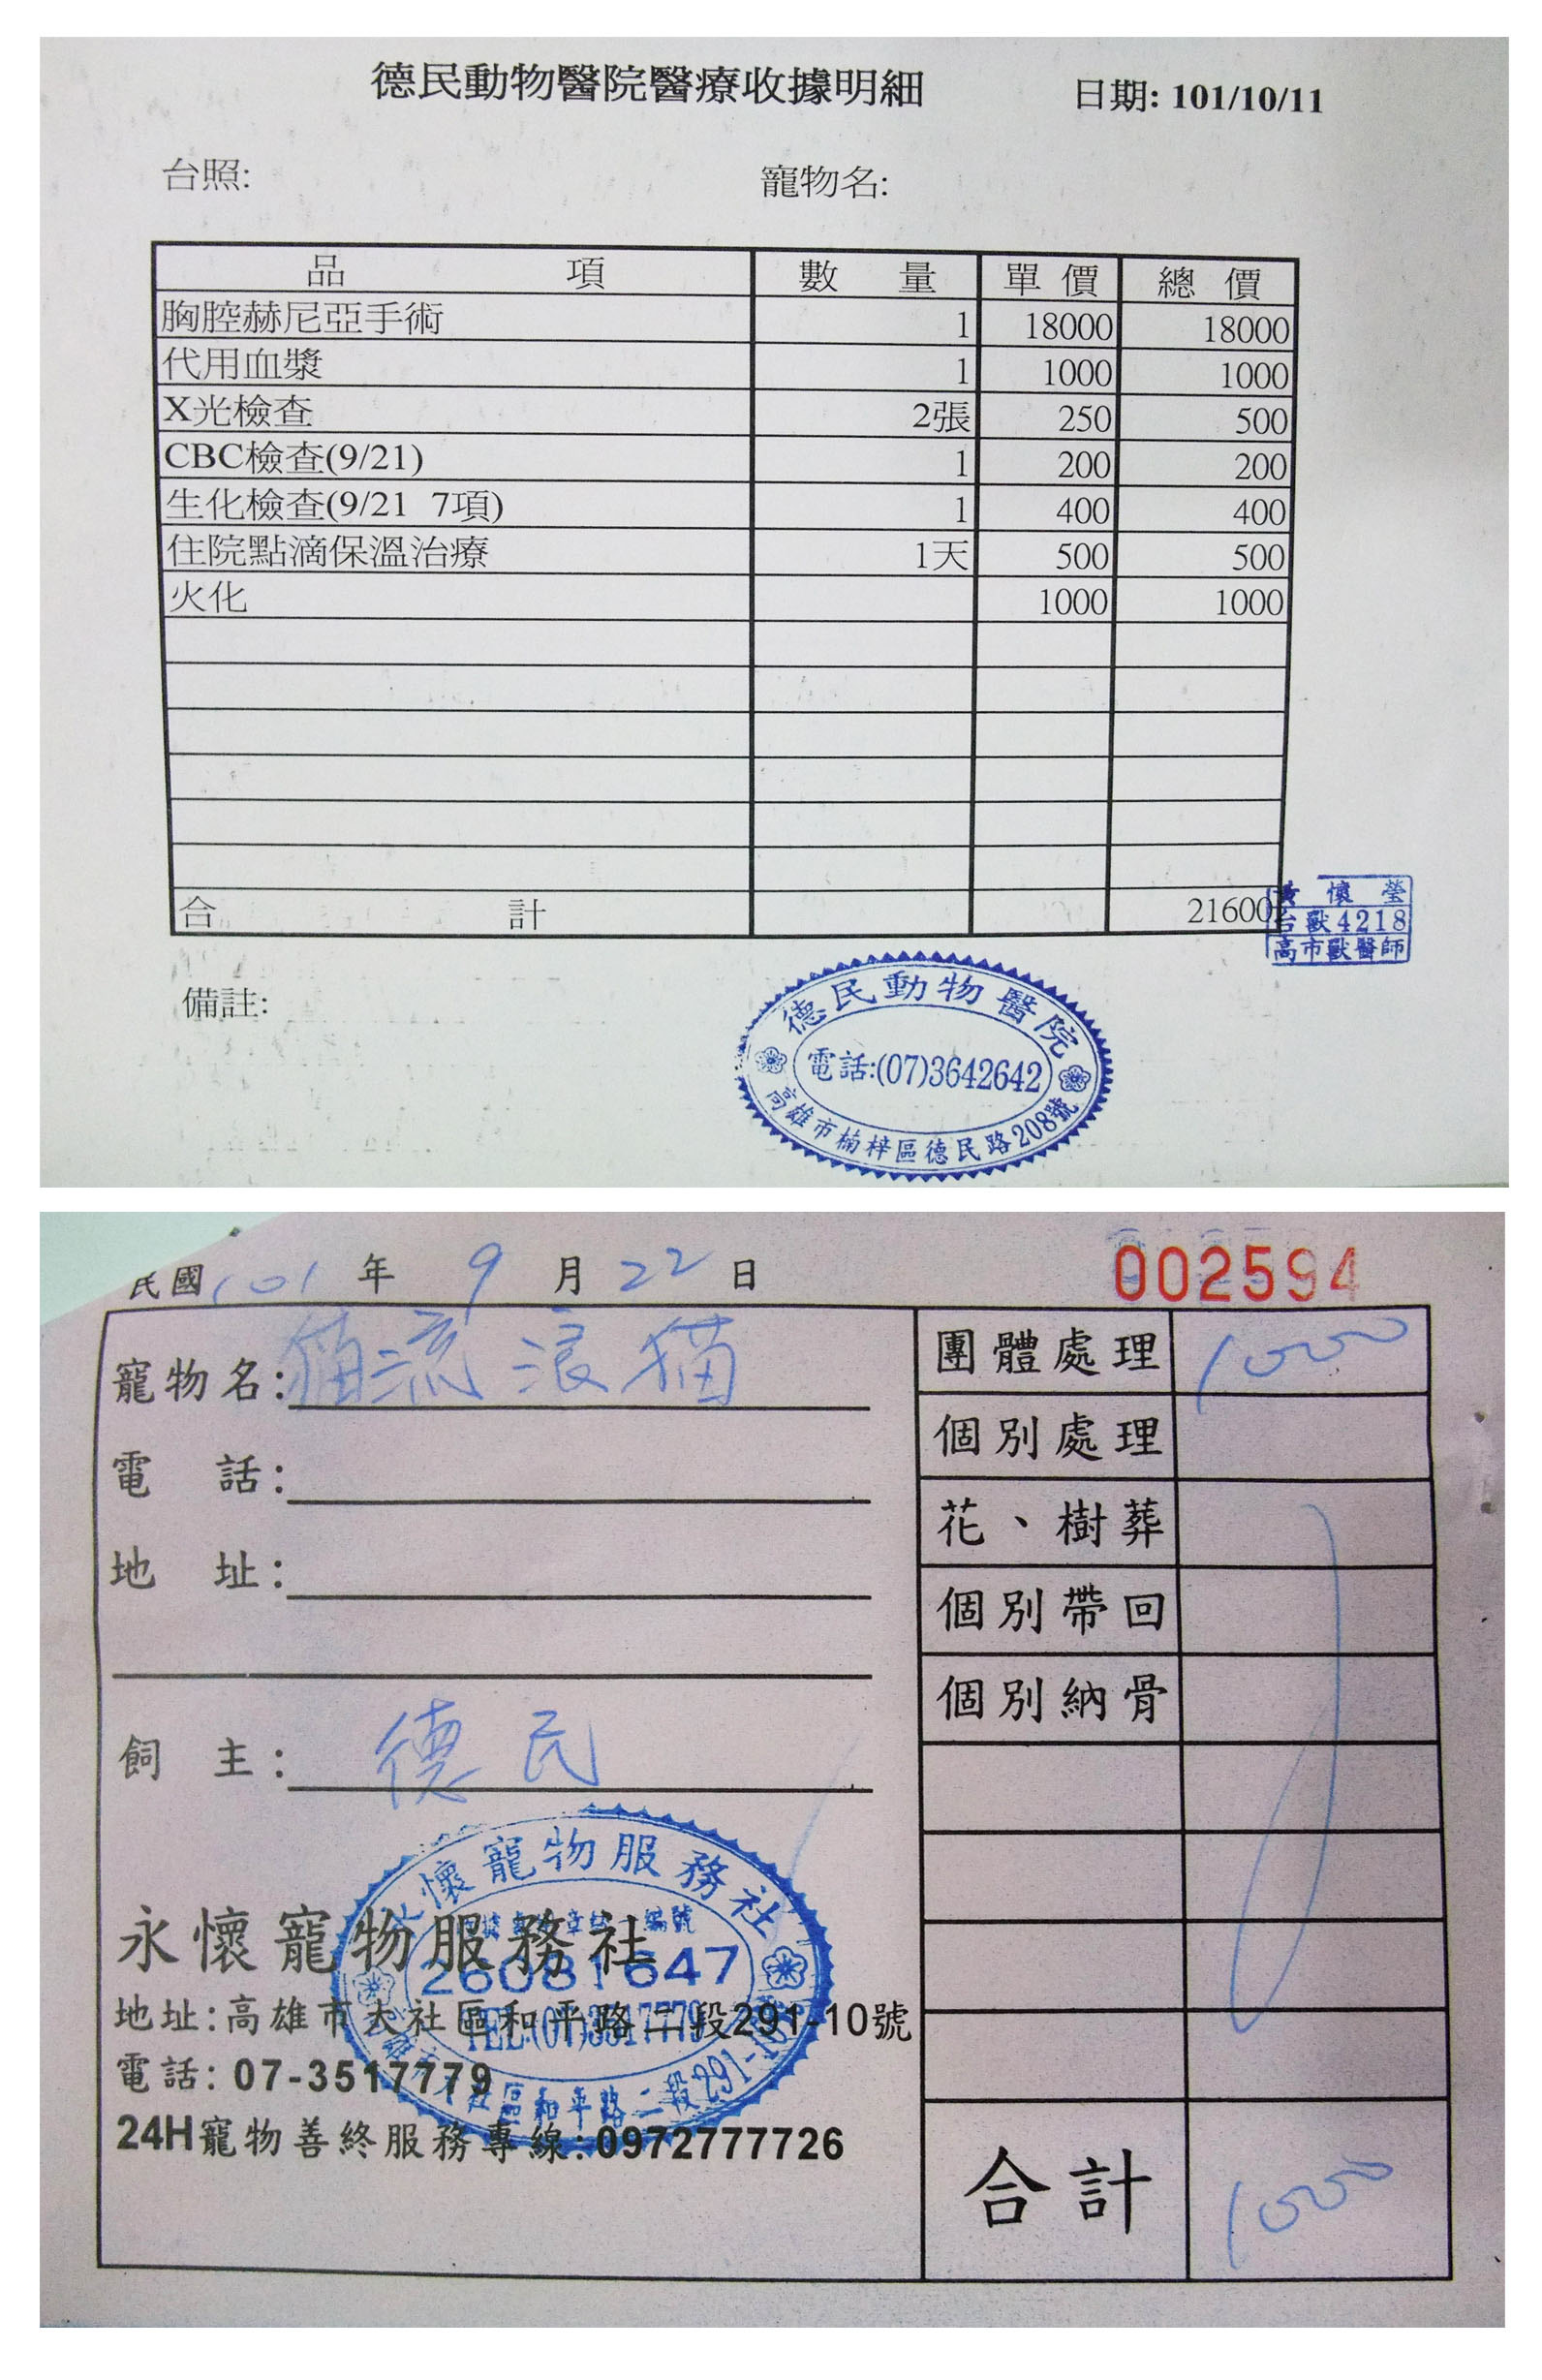 德民動物醫院醫療收據明細 日期: 101/10/11
台照: 寵物名:
品項 數量 單價 總價
胸腔赫尼亞手術 1 18000 18000
代用血漿 1 1000 1000
X光檢查 2張 250 500
CBC檢查(9/21) 1 200 200
生化檢查(9/21 7項) 1 400 400
住院點滴保溫治療 1天 500 500
火化 1000 1000
合計 21600
黃懷瑩
台獸4218
高市獸醫師
備註:
德民動物醫院
電話:(07)3642642
高雄市楠梓區德民路208號
民國101年9月22日 002594
寵物名:貓流浪猫
電話:
地址:
飼主:德民
團體處理 1000
個別處理
花、樹葬
個別帶回
個別納骨
合計 1000
永懷寵物服務社
26081647
TEL:(07)3517779
和平路二段291-10號
永懷寵物服務社
地址:高雄市大社區和平路二段291-10號
電話: 07-3517779
24H寵物善終服務專線:0972777726